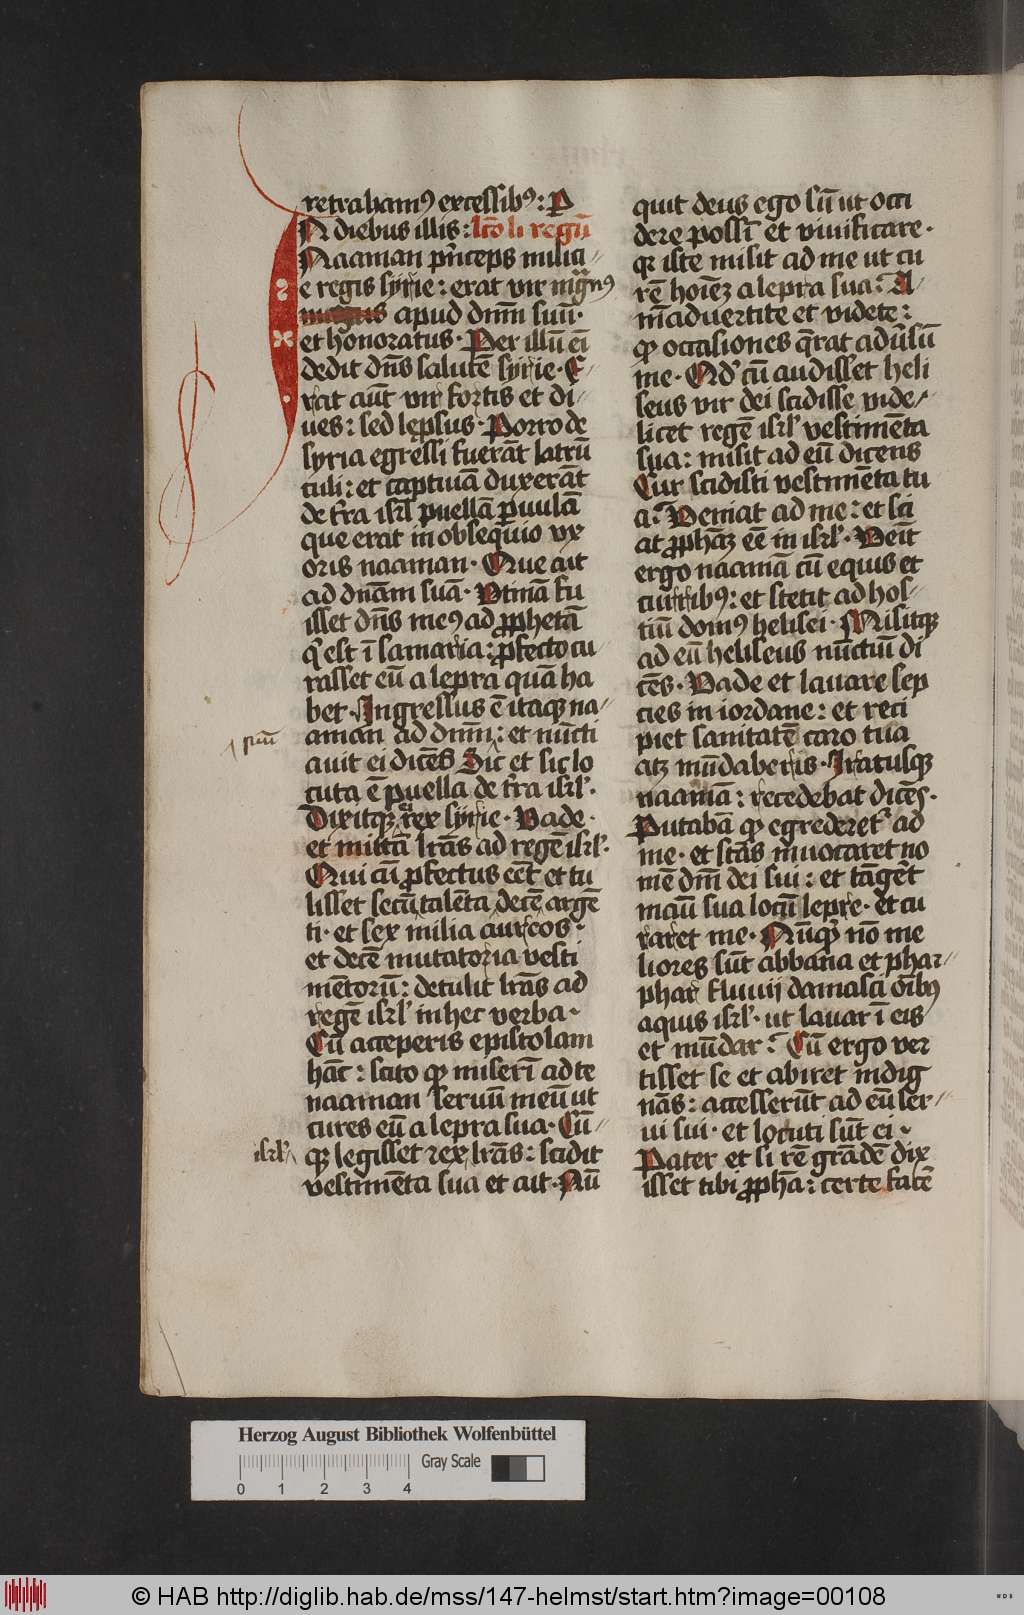 retrahamꝰ excessibꝰ: P
N diebus illis: lc̄o li regū
Naaman p̄nceps milici-
e regis syrie: erat vir mgnꝰ
magnus apud dnm̄ suū·
et honoratus· Per illū ei
dedit dn̄s salutē syrie· E-
rat aūt vir fortis et di-
ues: sed leprsus· Porro de
syria egressi fuerāt latrū
culi: et captiuā duxerāt
de tr̄a isrl̄ puellā ꝑuulā
que erat in obsequio vx
oris naaman· Que ait
ad dnām suā· Vtinā fu
isset dn̄s meꝰ ad ꝓphetā
q̄ est ī samaria: ꝓfecto cu
rasset eū a lepra quā ha
bet· Ingressus ē itaqꝫ na-
aman ad dnm̄: et nūcti
suū
auit ei dicēs Sic et sic lo
cuta ē puella de tr̄a isrl̄·
Dixitqꝫ rex syrie· Vade·
et mittā lr̄as ad regē isrl̄·
Qui cū ꝓfectus eēt et tu
lisset secū talēta decē argē
ti· et sex milia aureos·
et decē mutatoria vesti
mētorū: detulit lr̄as ad
regē isrl̄ in hec verba·
Cū acceperis epistolam
hāc: scito qꝫ miserī ad te
naaman seruū meū ut
cures eū a lepra sua· Cū-
isrl̄
qꝫ legisset rex lr̄as: scidit
vestimēta sua et ait· Nū
quit deus ego sū ut occi
dere possī et viuificare·
qꝫ iste misit ad me ut cu
rē hoīeꝫ a lepra sua: A-
nīaduertite et videte:
qꝫ occasiones q̄rat adūsū
me· Qd̄ cū audisset heli
seus vir dei scidisse vide-
licet regē isrl̄ vestimēta
sua: misit ad eū dicens
Cur scidisti vestimēta tu
a: Veniat ad me: et sci
at ꝓphāꝫ eē in isrl̄· Venīt
ergo naamā cū equis et
curribꝰ: et stetit ad hos-
tiū domꝰ helisei· Misitqꝫ
ad eū heliseus nūctiū di
cēs· Vade et lauare sep
cies in iordane: et reci
piet sanitatē caro tua
atꝫ mūdaberis· Iratusqꝫ
naamā: recedebat dicēs·
Putabā qꝫ egrederet᷑ ad
me· et stās īnuocaret no
mē dnī dei sui: et tāget
manū sua locū lepre· et cu
raret me· Nūqꝫ nō me
liores sūt abbana et phar-
phar fluuij damasci oībꝰ
aquis isrl̄· ut lauar ī eis
et mūdar: Cū ergo ver
tisset se et abiret indig
nās: accesserūt ad eū ser-
ui sui· et locuti sūt ei·
Pater et si rē grādē dix
isset tibi ꝓphā: certe facē
Herzog August Bibliothek Wolfenbüttel
Gray Scale
0 1 2 3 4
© HAB http://diglib.hab.de/mss/147-helmst/start.htm?image=00108